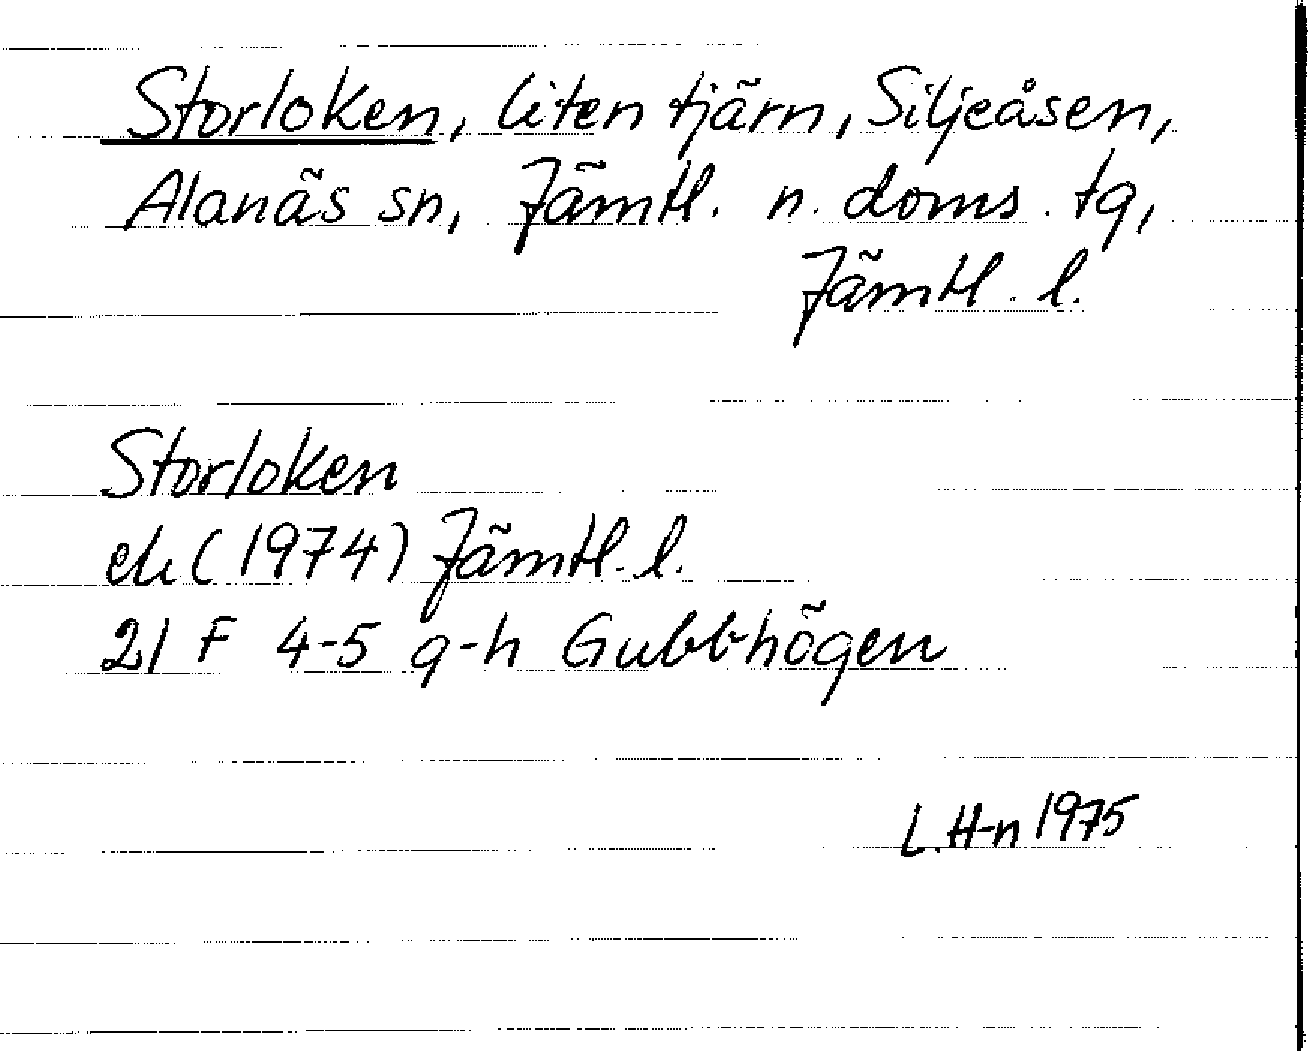 Storloken, liten tjärn, Siljeåsen,
Alanäs sn, Jämtl. n. doms. tg,
Jämtl. l.
Storloken
ek (1974) Jämtl. l.
21 F 4-5 g-h Gubbhögen
L. H-n 1975